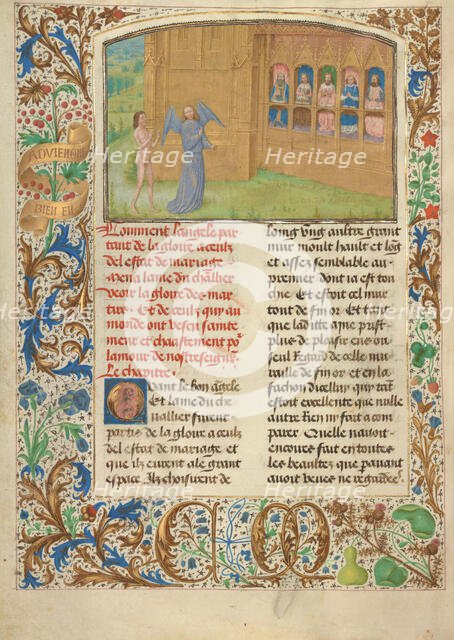 ADVIENNE
BIEN EN
Comment langele par
tant de la gloire a ceulz
del estat de mariage
mena lame du chlallier
veoir la gloire des mar
turs Et de ceulz qui au
monde ont vescu saincte
ment et chastement po
lamour de nostreseignr
Le chapitre
Quant le bon angele
Et lame du che
uallier furent
partis de la gloire a ceulz
del estat de mariage et
que ilz eurent ale grant
espace Ilz choisirent de
loing vng aultre grant
mur moult hault et log
et assez semblable au
premier dont ia est tou
chie Et estoit cel mur
tout de fin or Et com bien
que laditte ame prist
plus de plaisir en ou
seul regard de celle mu
raille de fin or et en la
fachon dicelluy qui tat
estoit excellente que nulle
autre Rien ny fait a com
parer Quelle nauoit
encoire fait en toutes
les beaultez que parauant
auoit veues ne regardees
CM
Heritage
Heritage
Heritage
Heritage
Heritage
Heritage
Heritage
Heritage